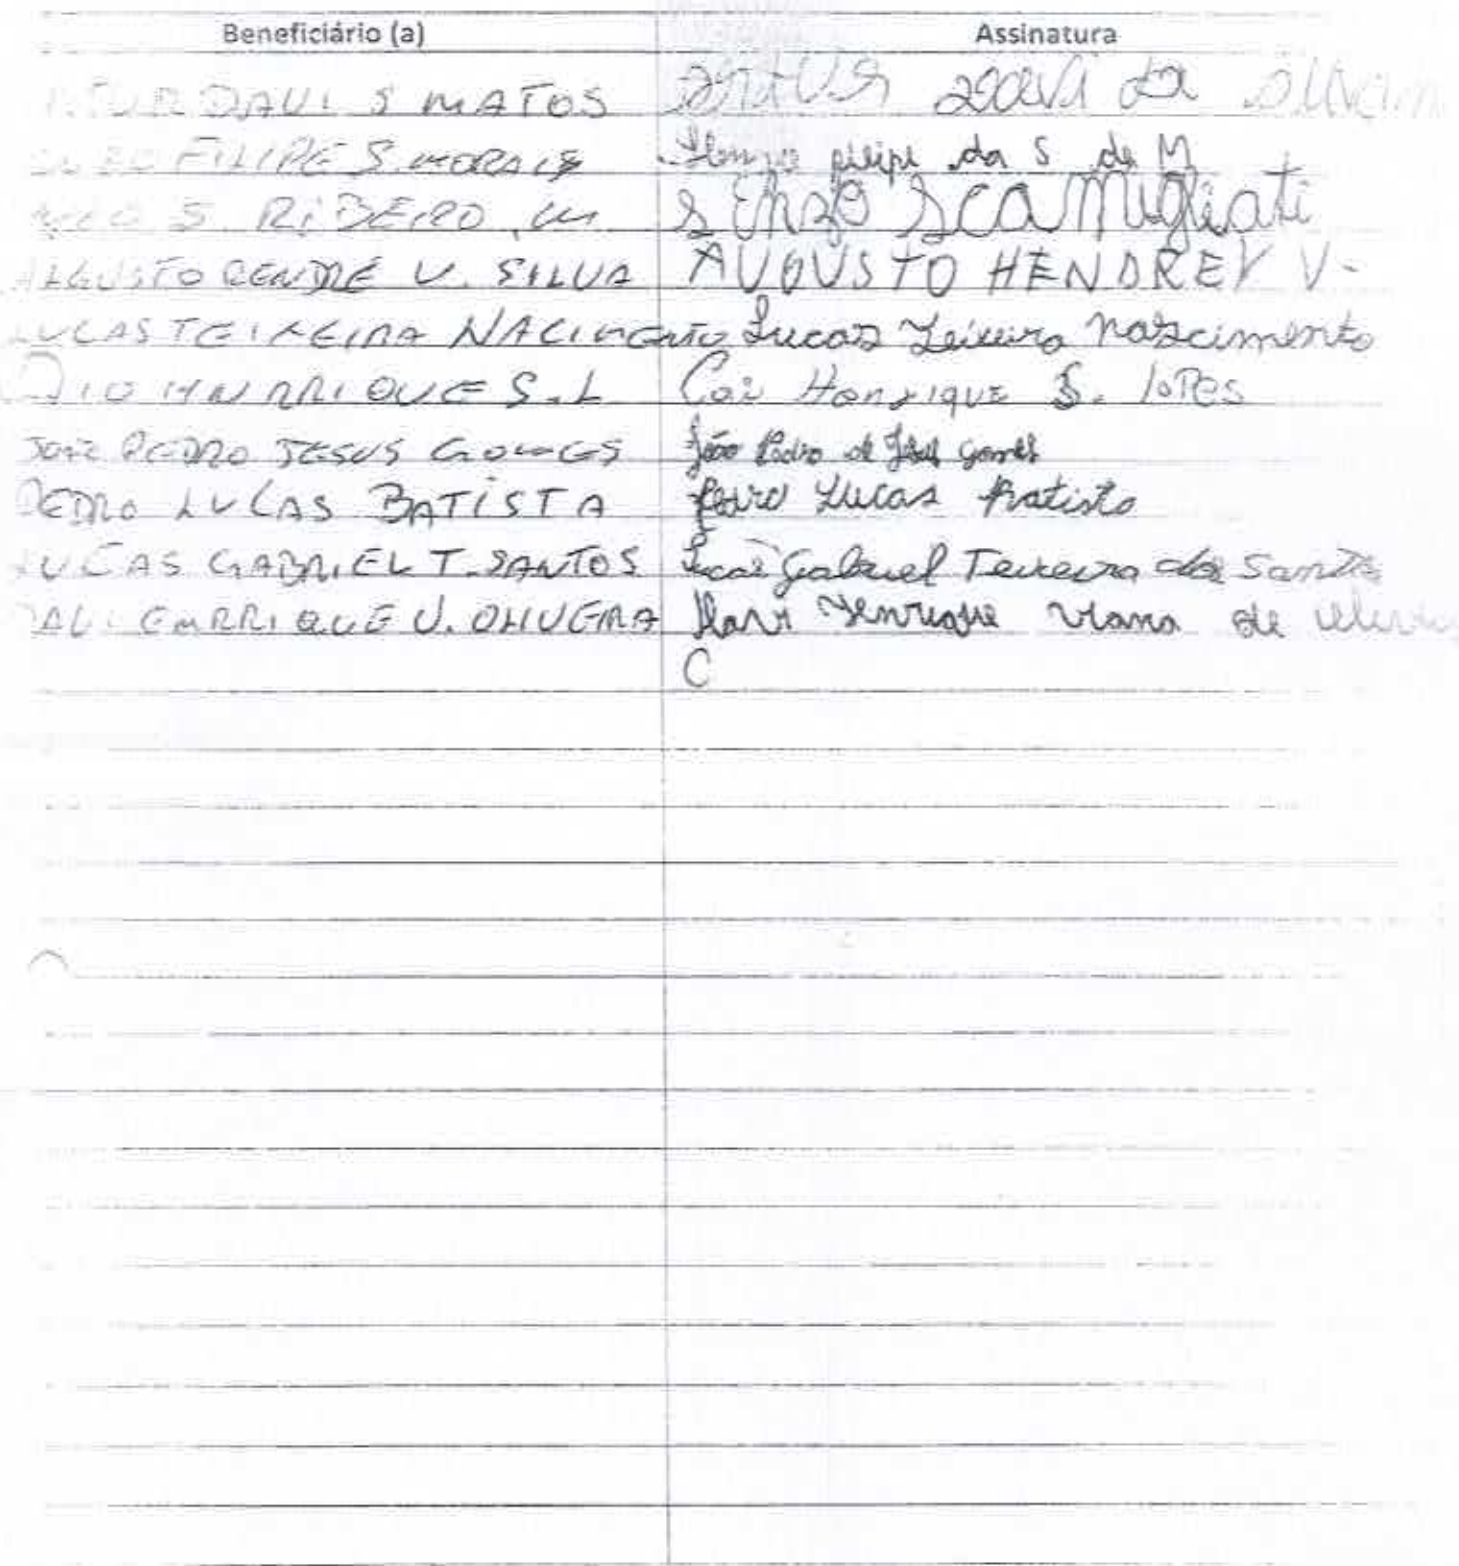 Beneficiário (a) Assinatura
DAVI S MATOS
FILIPE S. MORAIS da S de M
S. RIBEIRO Enzo Scamigliati
AUGUSTO V. SILVA AUGUSTO HENDREY V-
LUCAS TEIXEIRA NACIMENTO Lucas Teixeira Nascimento
HNRRIQUE S.L Henrique S. loPes
PEDRO JESUS GOMES João Pedro de Jesus Gomes
PEDRO LUCAS BATISTA Pedro Lucas Batista
LUCAS GABRIEL T. SANTOS Lucas Gabriel Teixeira dos Santos
DAVI EMRRIQUE V. OLIVEIRA Davi Henrique Viana de
C